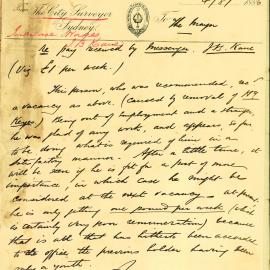 4/8/ 1886
From The City Surveyor To The Mayor
Sydney.
Increase Wages
J B Cane
re pay received by Messenger, J B Kane
(viz £1 per week.)
This person, who was recommended, as
a vacancy as above (caused by removal of
Keyes) Being out of employment and a stranger,
he was glad of any work, and appears so far
to be doing what is required of him, in a
satisfactory manner. After a little time, it
will be seen if he is fit for a post of more
importance, in which case he might be
considered at the next vacancy — at present,
he is only getting one pound per week (which
is certainly very poor remuneration) because
that is all that has hitherto been accorded
to the office, the previous holder having been
only a youth.